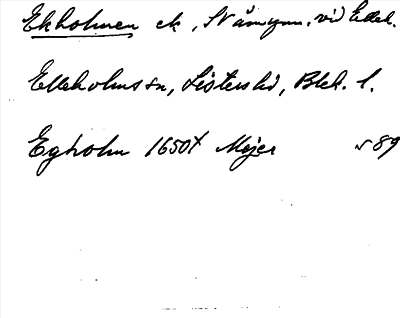 Ekholmen ek, N åmynn. vid Elleh.
Elleholms sn, Listers hd, Blek. l.
Egholm 1650t Mejer s 89